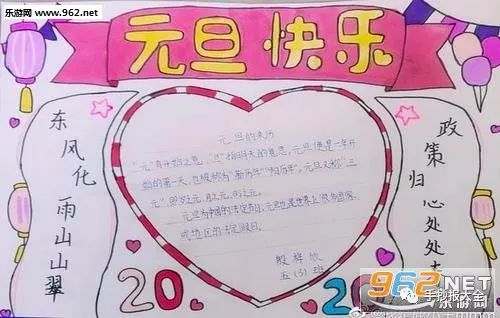 乐游网 www.962.net
元旦快乐
东风化雨山山翠
政策归心处处
元旦的来历
"元"有开始之意,"旦"指明天的意思,元旦便是一年开
始的第一天,也被称为"新历年""阳历年"。元旦又称"三
元"即岁之元、月之元、时之元。
元旦为中国的法定节日,元旦也是世界上很多国家
或地区的法定假日。
五(3)班
20 2
962.NET
乐游网
手抄报大全